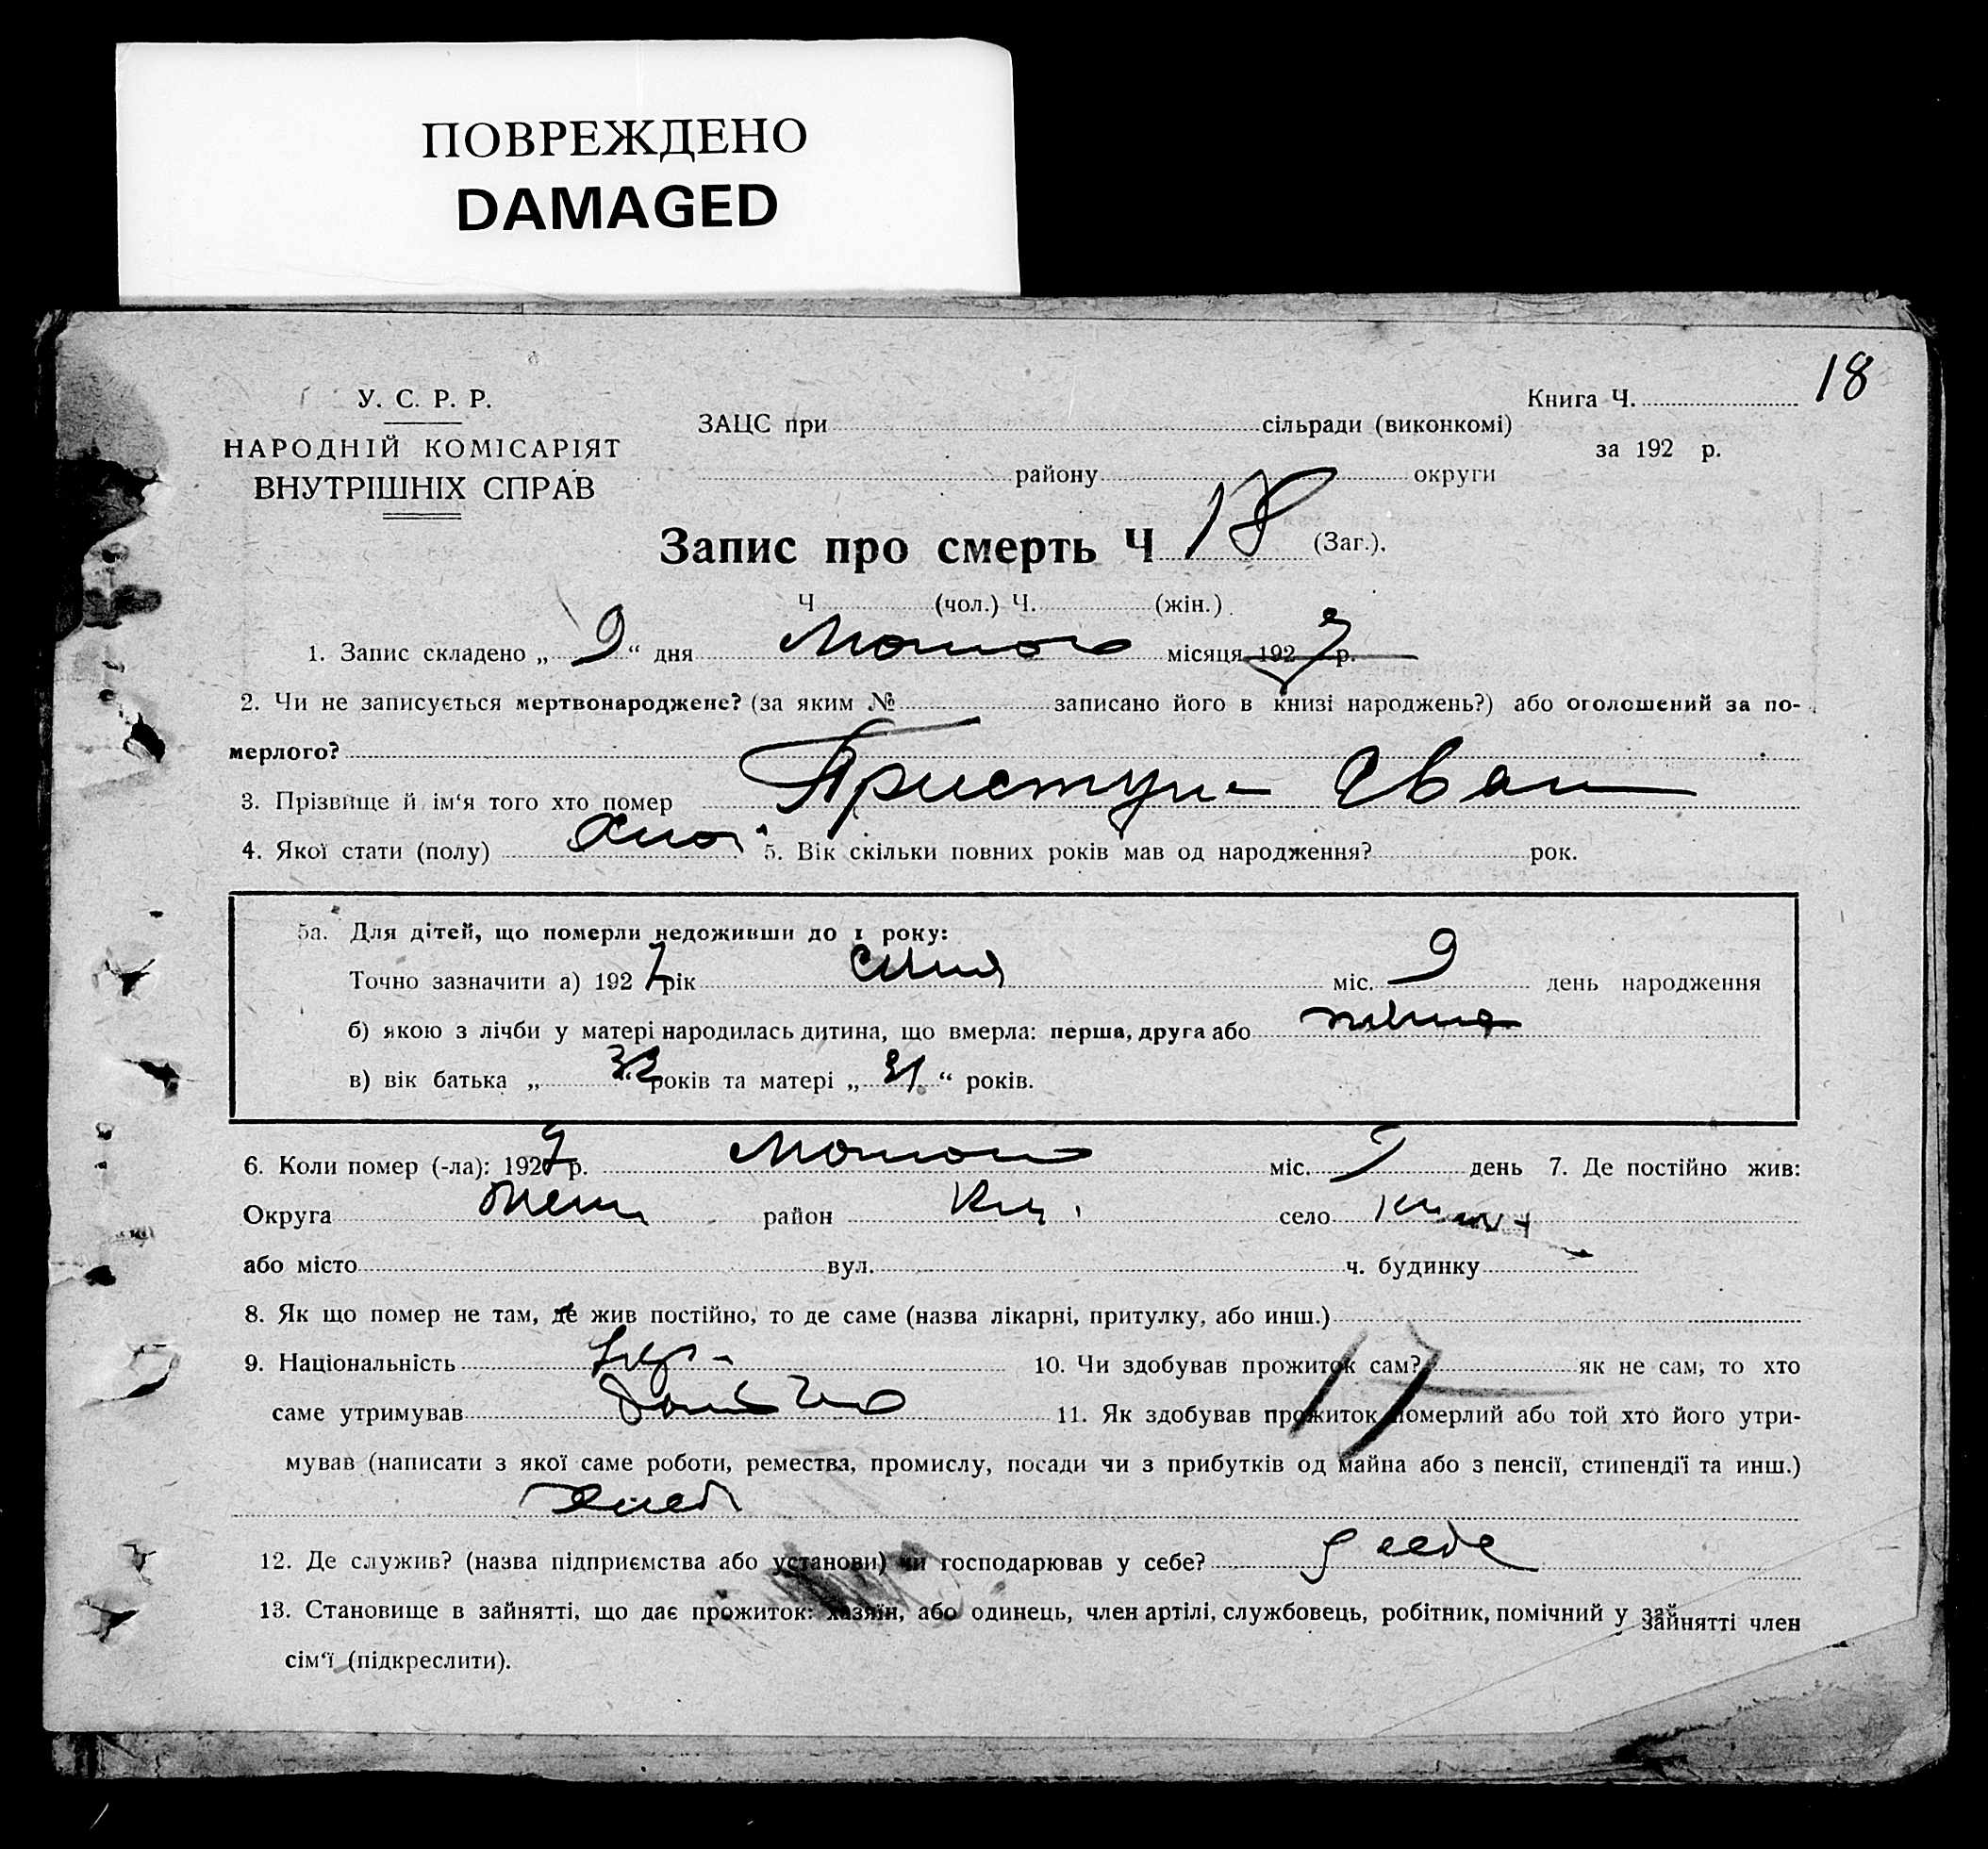 ПОВРЕЖДЕНО
DAMAGED
18
У. С. Р. Р.
НАРОДНІЙ КОМІСАРІЯТ
ВНУТРІШНІХ СПРАВ
ЗАЦС при сільради (виконкомі)
району округи
Книга Ч.
за 192 р.
Запис про смерть Ч 18 (Заг.).
Ч (чол.) Ч. (жін.)
1. Запис складено „ 9 “ дня Лютого місяця 1927 р.
2. Чи не записується мертвонароджене? (за яким № записано його в книзі народжень?) або оголошений за по-
мерлого?
3. Прізвище й ім‘я того хто помер Приступа Іван
4. Якої стати (полу) 5. Вік скільки повних років мав од народження? рок.
5а. Для дітей, що померли недоживши до 1 року:
Точно зазначити а) 1927 рік Січня міс. 9 день народження
б) якою з лічби у матері народилась дитина, що вмерла: перша, друга або
в) вік батька „ 32 “ років та матері „ 31 “ років.
6. Коли помер (-ла): 1927 р. Лютого міс. день 7. Де постійно жив:
Округа район село
або місто вул. ч. будинку
8. Як що помер не там, де жив постійно, то де саме (назва лікарні, притулку, або инш.)
9. Національність Укр. 10. Чи здобував прожиток сам? як не сам, то хто
17
саме утримував батько 11. Як здобував прожиток померлий або той хто його утри-
мував (написати з якої саме роботи, ремества, промислу, посади чи з прибутків од майна або з пенсії, стипендії та инш.)
12. Де служив? (назва підприємства або установи) чи господарював у себе? у себе
13. Становище в зайнятті, що дає прожиток: хазяїн, або одинець, член артілі, службовець, робітник, помічний у зайнятті член
сім‘ї (підкреслити).